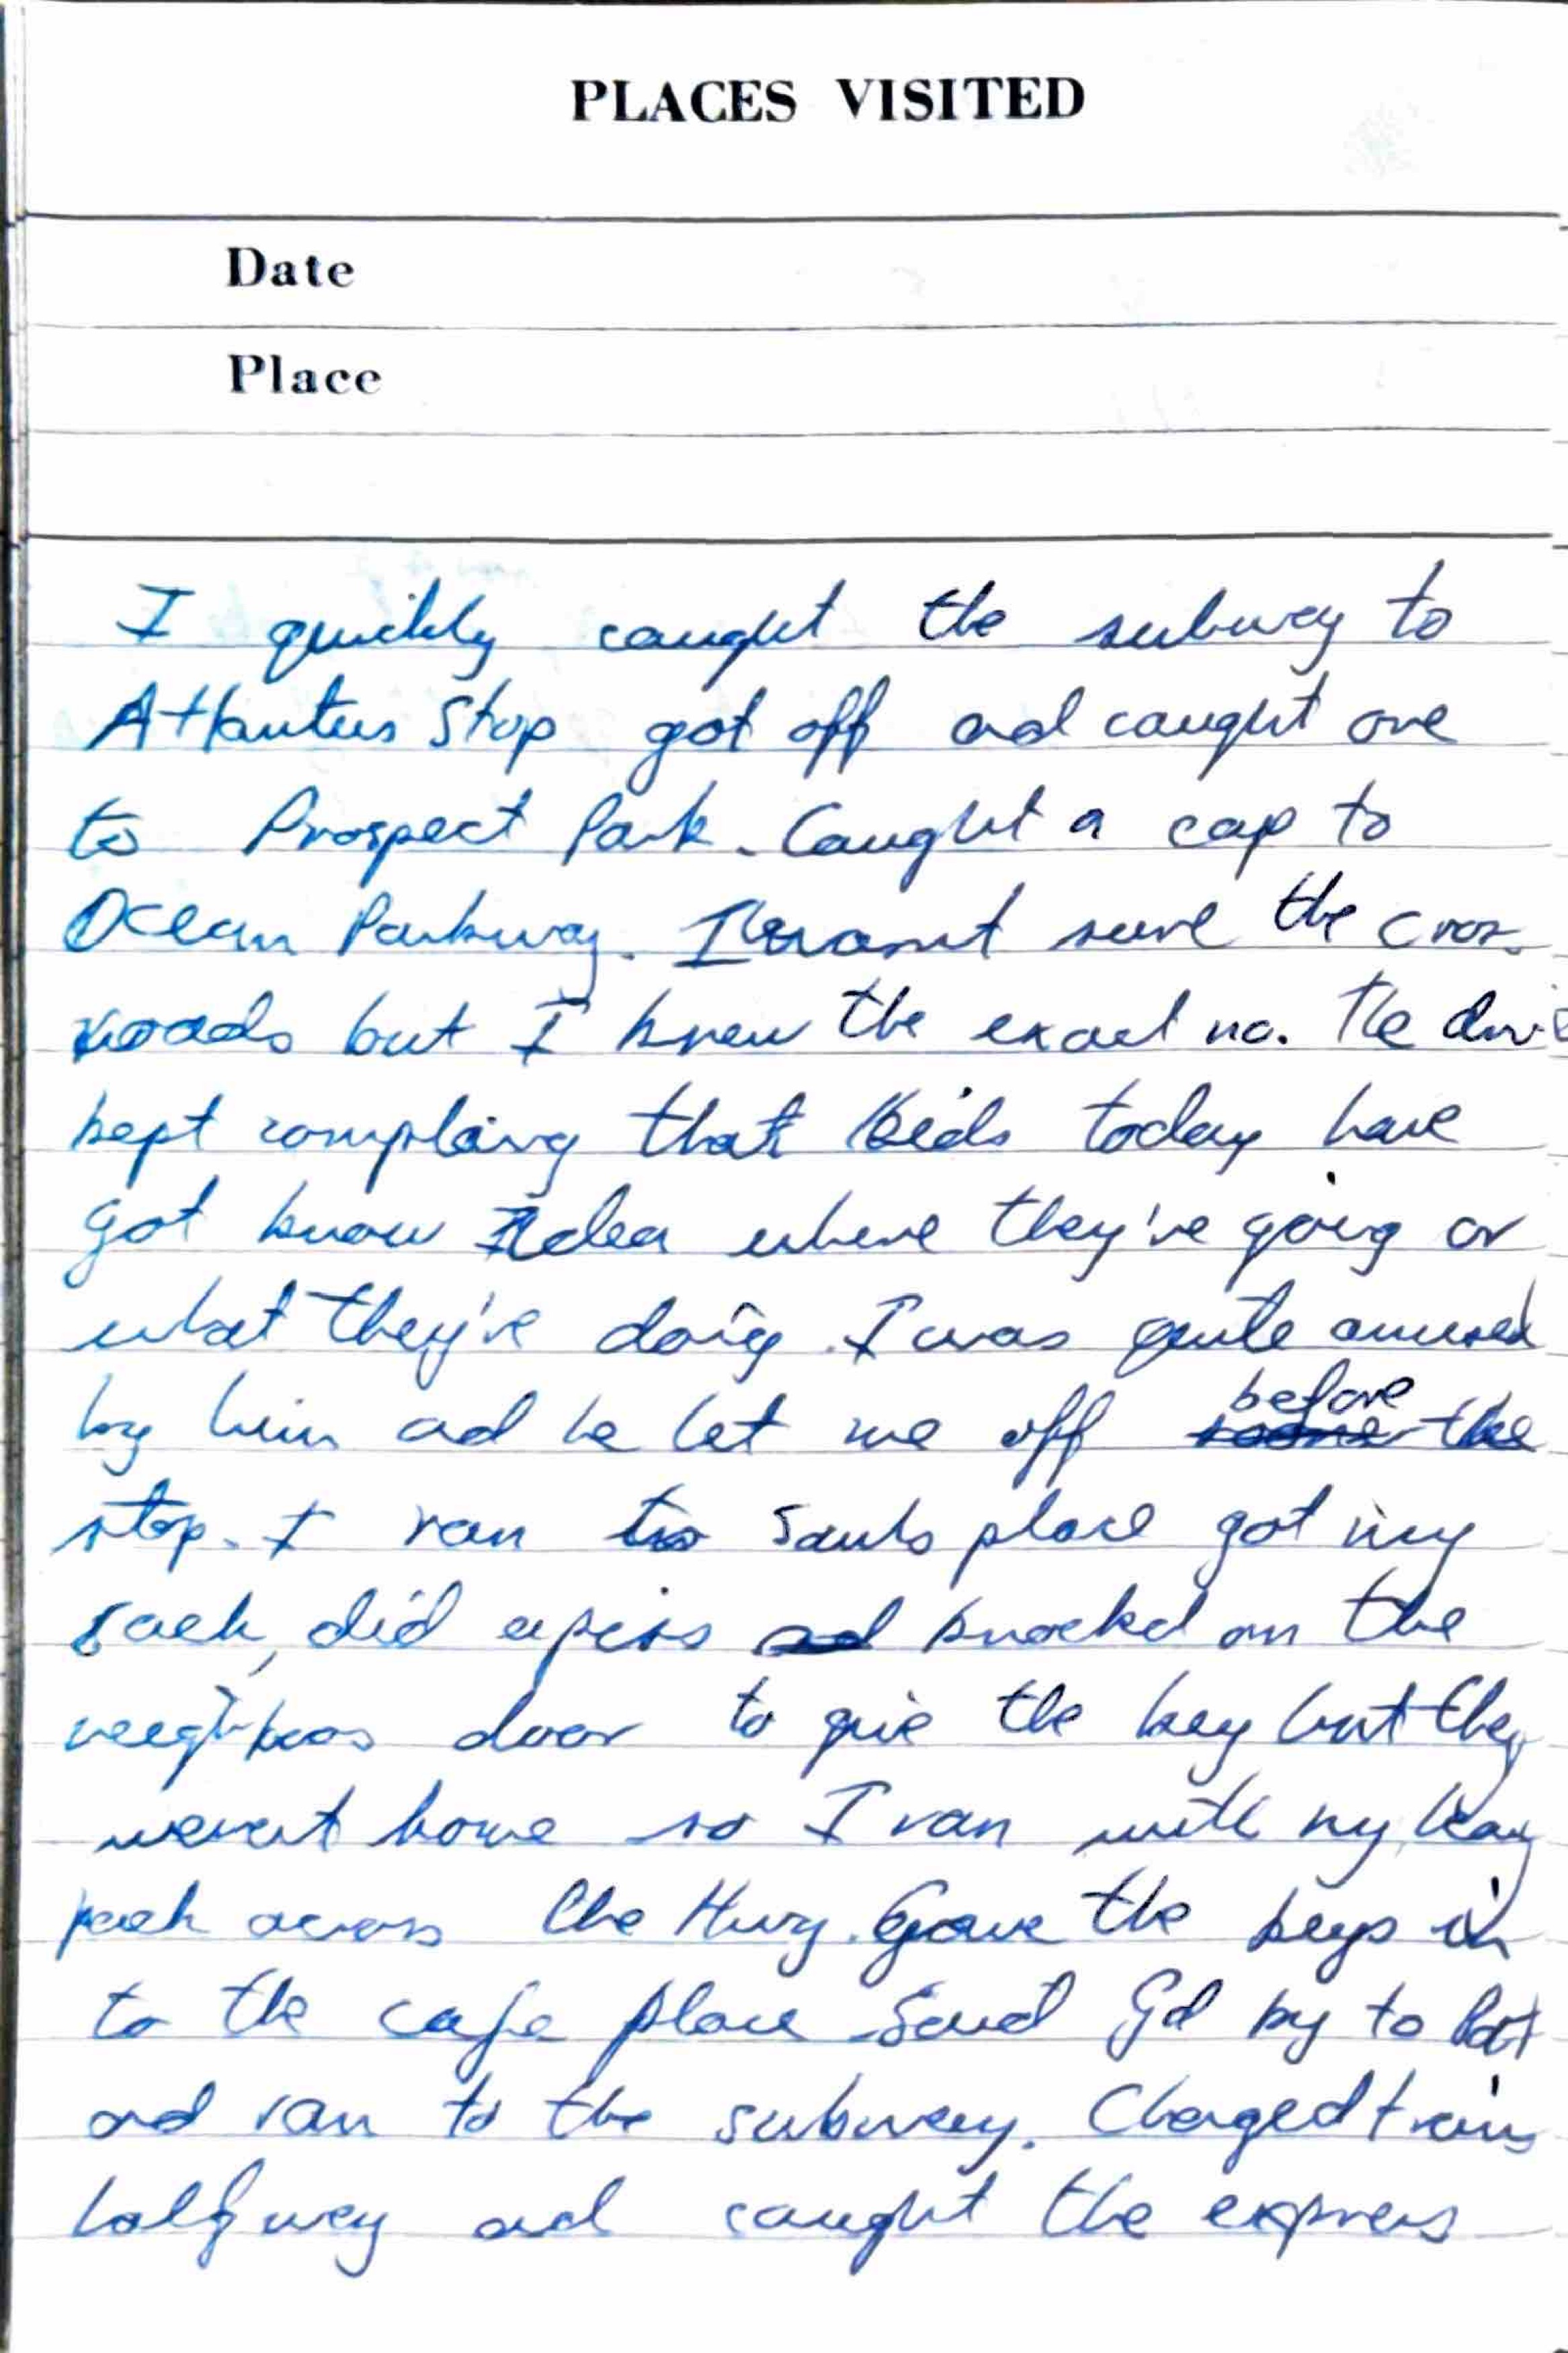 PLACES VISITED
Date
Place
I quickly caught the subway to
Atlantus Stop got off and caught one
to Prospect Park. Caught a cap to
Ocean Parkway. I wasnt sure the cros
roads but I knew the exact no. The
kept complaing that Kids today have
got know Idea where they're going or
what they're doing. I was quite amused
by him ad he let me off before the
stop. I ran to Sauls place got my
sack, did a piss ad knocked on the
neighbors door to give the key but they
werent home so I ran with my
pack across the Hwy. Gave the keys in
to the cafe place Said Gd by to
and ran to the subway. Changed trains
halfway ad caught the express